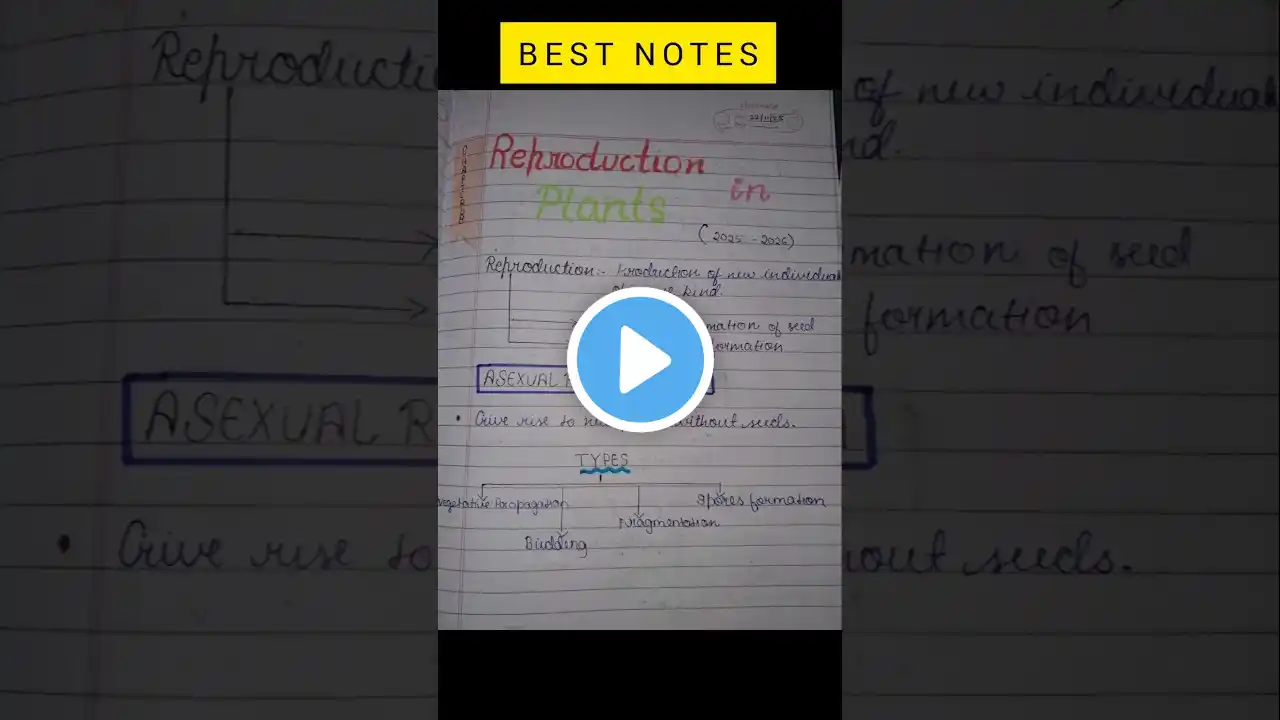 BEST NOTES
Reproduction in
Plants
(2025 - 2026)
Reproduction:- Production of new individual
of kind.
mation of seed
formation
ASEXUAL R
• Give rise to without seeds.
TYPES
Vegetative Propagation
Spores formation
Fragmentation
Budding